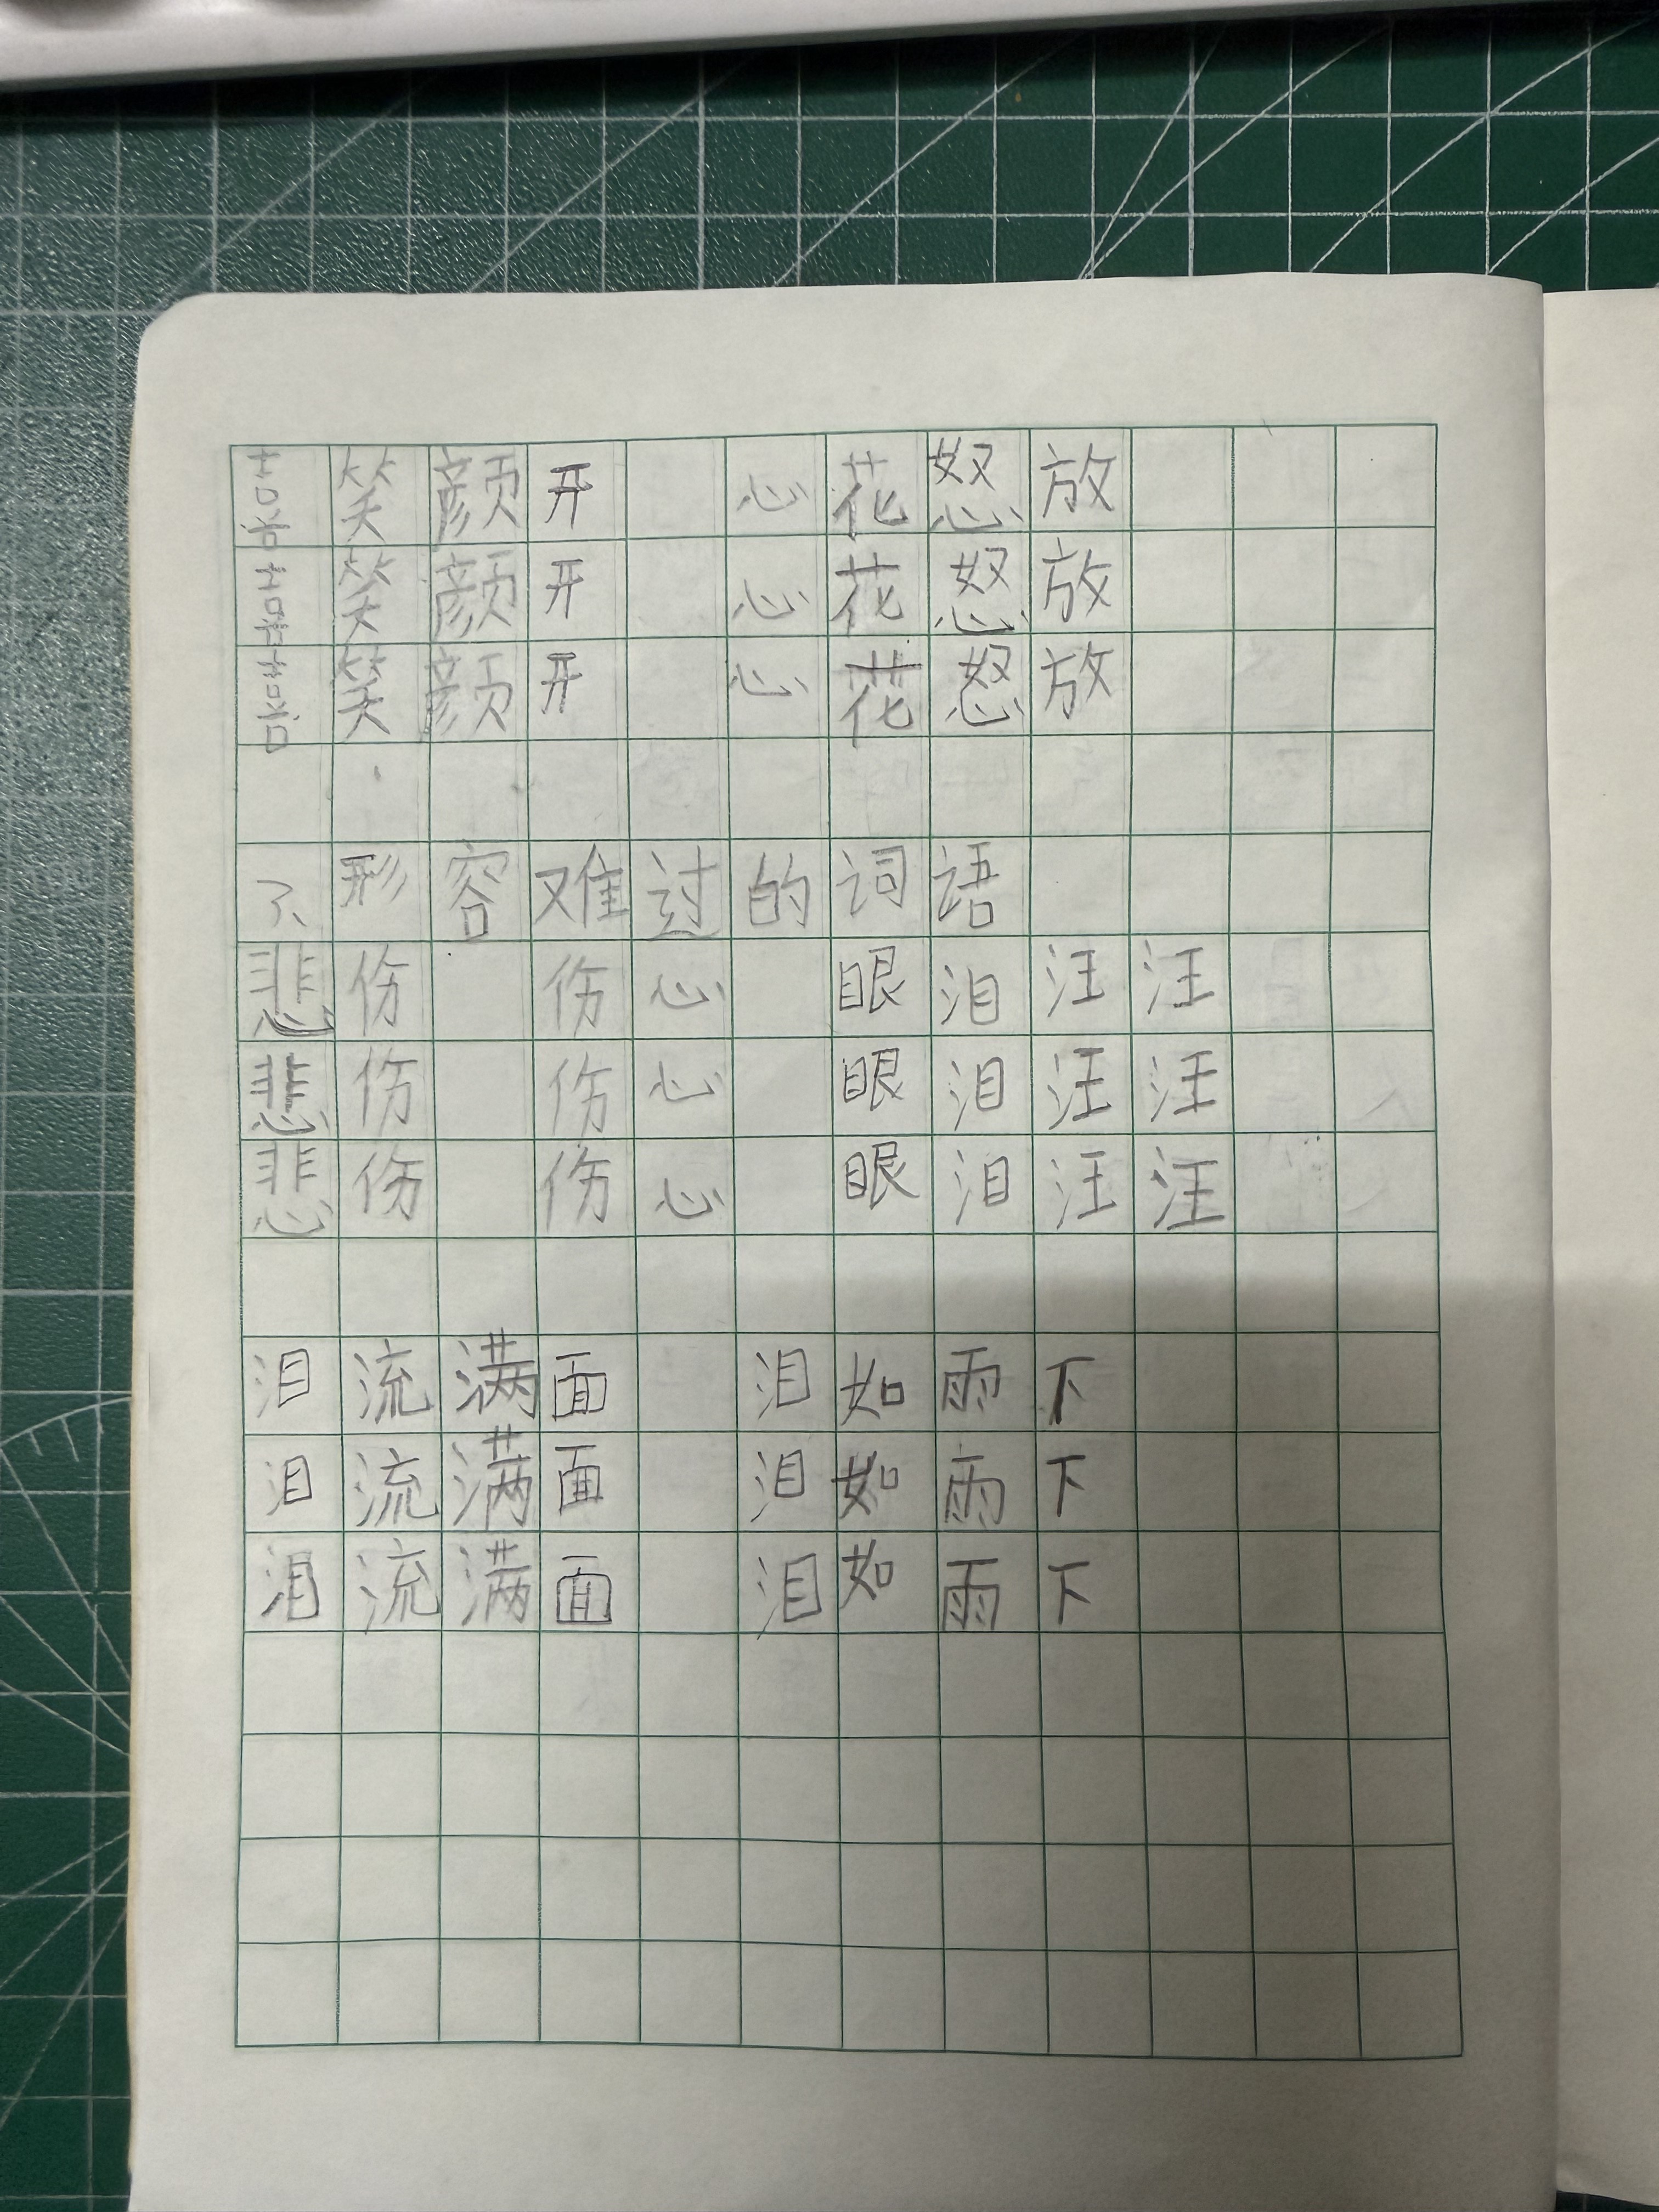 喜笑颜开 心花怒放
喜笑颜开 心花怒放
喜笑颜开 心花怒放
3、形容难过的词语
悲伤 伤心 眼泪汪汪
悲伤 伤心 眼泪汪汪
悲伤 伤心 眼泪汪汪
泪流满面 泪如雨下
泪流满面 泪如雨下
泪流满面 泪如雨下